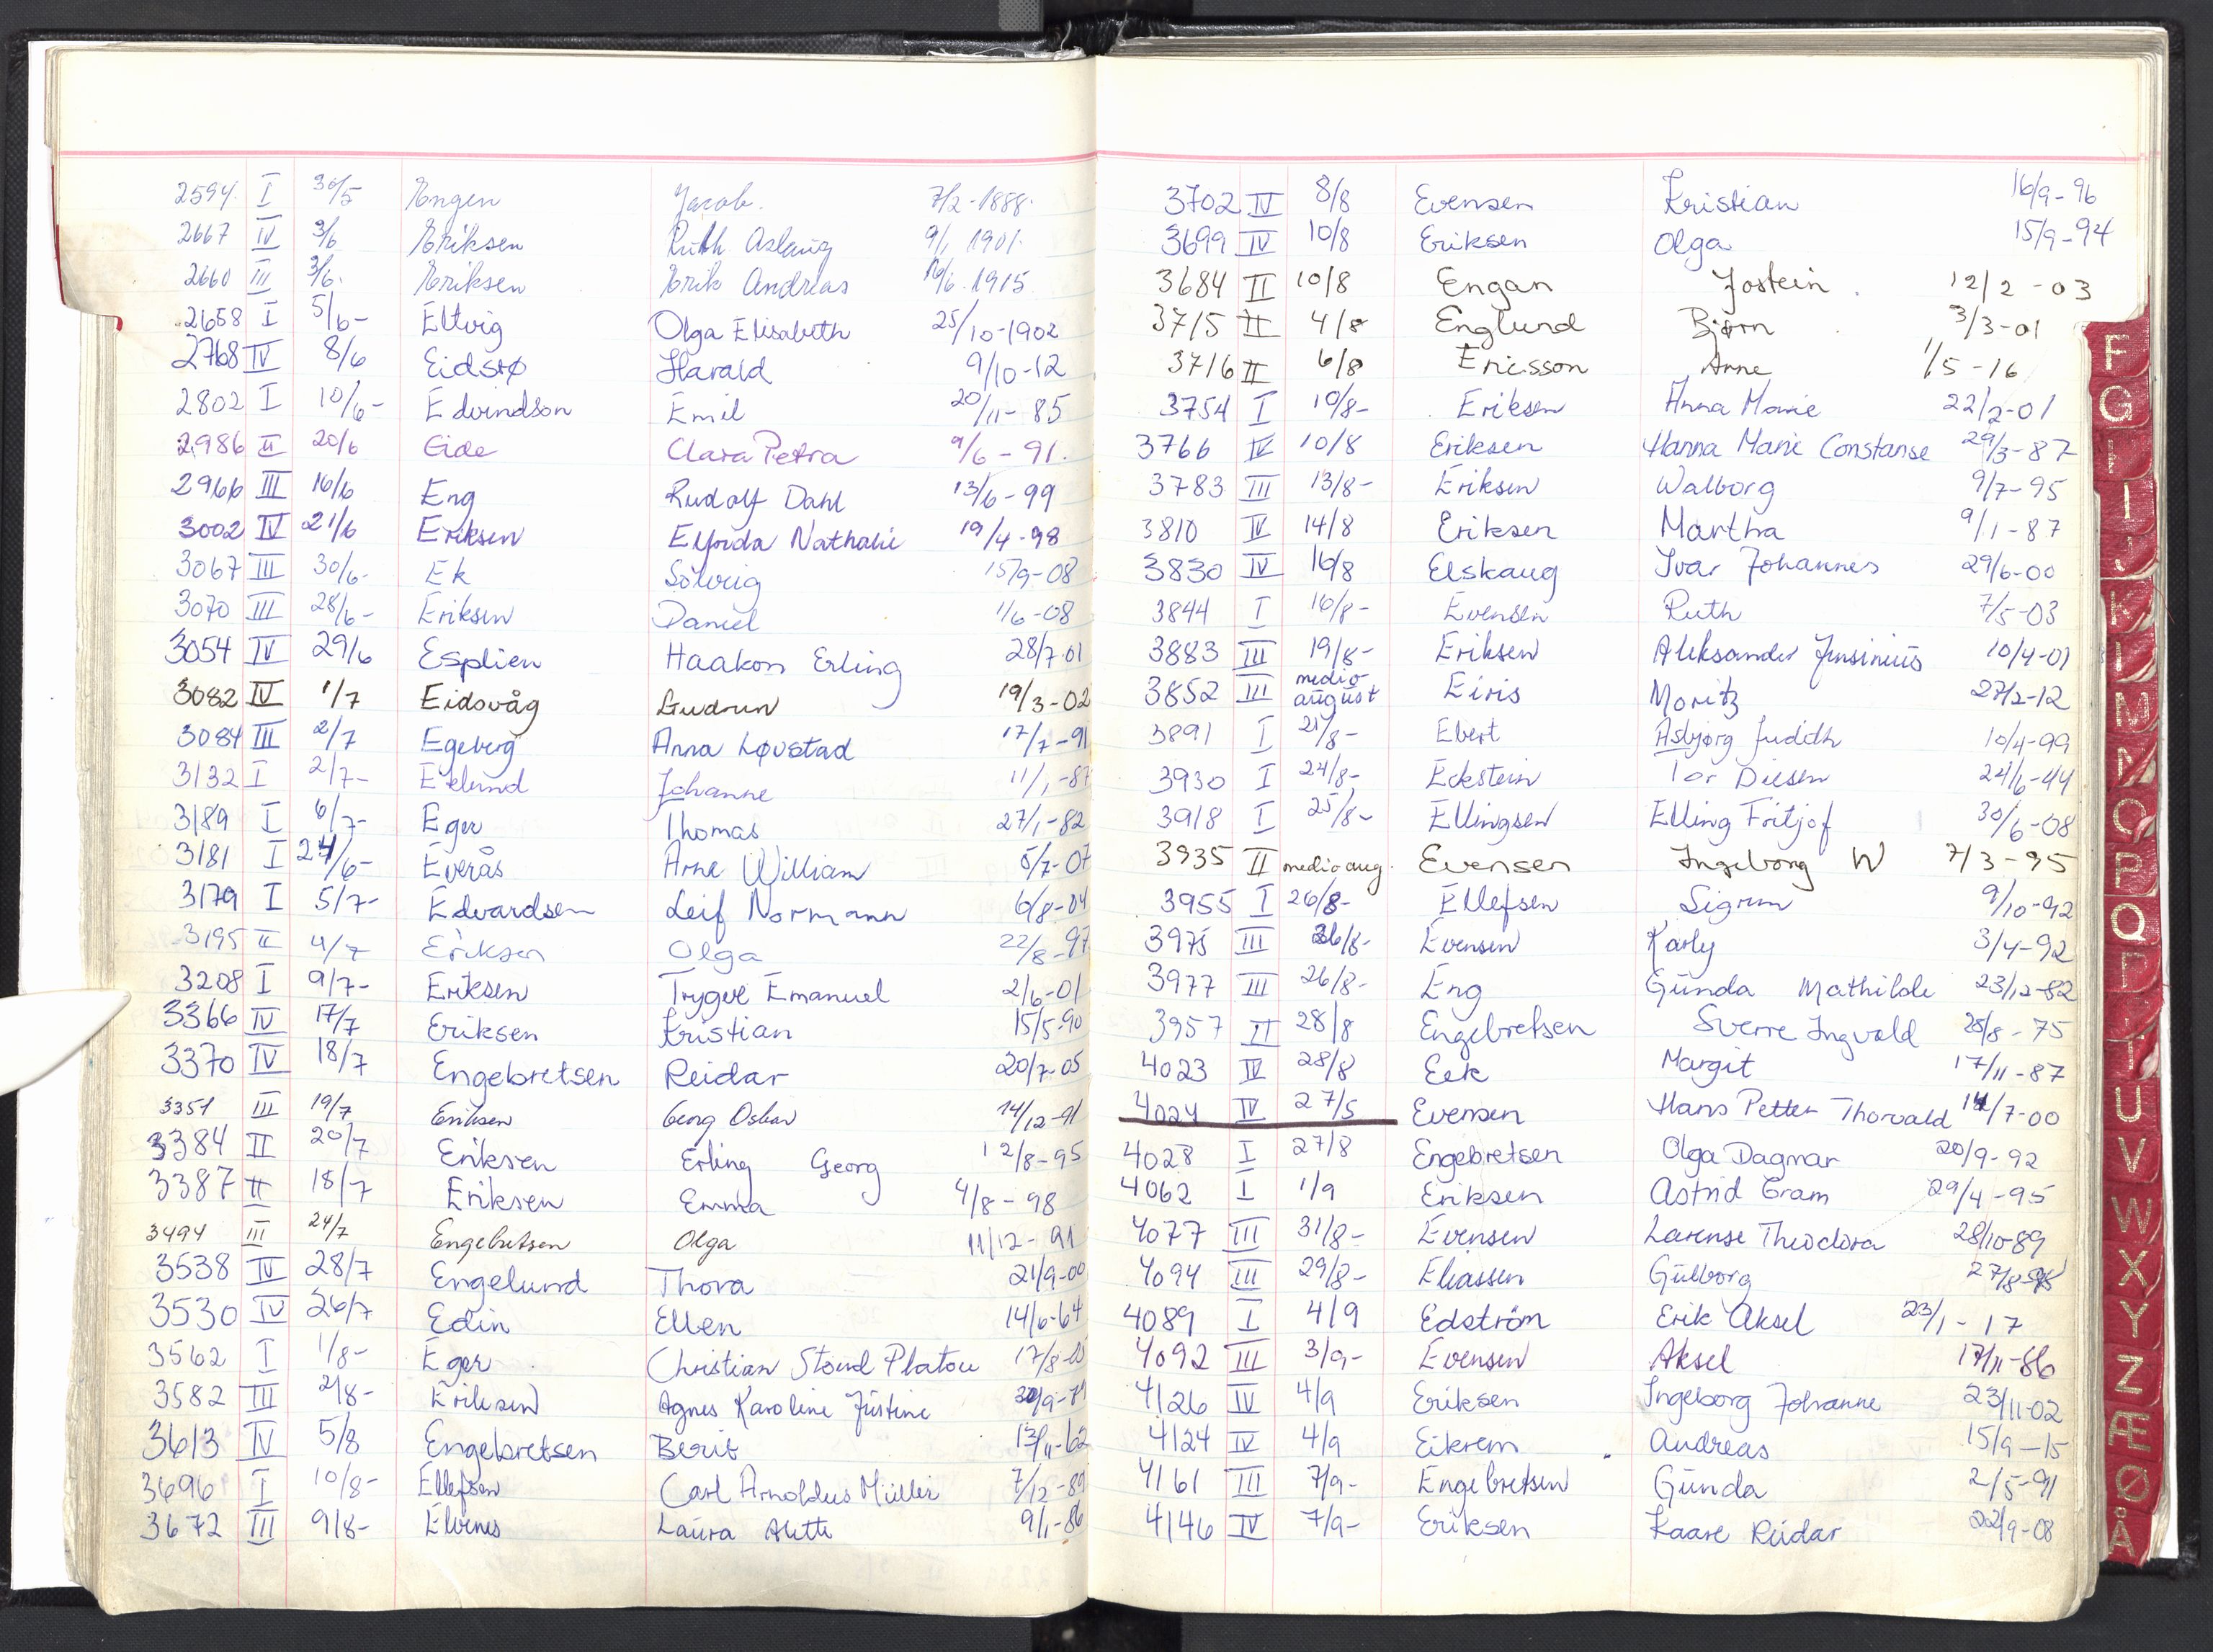 2594 I 30/5 Engen Jacob. 7/2-1888.
2667 IV 3/6 Eriksen Ruth Aslaug 9/1 1901.
2660 III 3/6. Eriksen Erik Andreas 16/6. 1915.
2658 I 5/6- Eltvig Olga Elisabeth 25/10-1902
2768 IV 8/6 Eidsrø Harald 9/10-12
2802 I 10/6- Edvindson Emil 20/11-85
2986 II 20/6 Eide Clara Petra 9/6-91.
2966 III 16/6 Eng Rudolf Dahl 13/6-99
3002 IV 21/6 Eriksen Elfrida Nathalie 19/4-98
3067 III 30/6- Ek Sölvig 15/9-08
3070 III 28/6- Eriksen Daniel 1/6-08
3054 IV 29/6 Esplien Haakon Erling 28/7-01
3082 IV 1/7 Eidsvåg Gudrun 19/3-02
3084 III 2/7 Egeberg Anna Løvstad 17/7-91
3132 I 2/7- Eklund Johanne 11/1-87
3189 I 6/7- Eger Thomas 27/1-82
3181 I 24/6- Everås Arne William 5/7-07
3179 I 5/7- Edvardsen Leif Normann 6/8-04
3195 II 4/7 Eriksen Olga 22/8-97
3208 I 9/7- Eriksen Trygve Emanuel 2/6-01
3366 IV 17/7 Eriksen Kristian 15/5-90
3370 IV 18/7 Engebretsen Reidar 20/7-05
3351 III 19/7 Eriksen Georg Oskar 14/12-91
3384 II 20/7 Eriksen Erling Georg 12/8-95
3387 II 18/7 Eriksen Emma 4/8-98
3494 III 24/7 Engebretsen Olga 11/12-91
3538 IV 28/7 Engelund Thora 21/9-00
3530 IV 26/7 Edin Ellen 14/6-64
3562 I 1/8- Eger Christian Stoud Platou 17/8-
3582 III 2/8- Eriksen Agnes Karoline Justine
3613 IV 5/8 Engebretsen Berit 13/11-62
3696 I 10/8- Ellefsen Carl Arnoldus Müller 7/12-89
3672 III 9/8- Elvenes Laura Alette 9/1-86
3702 IV 8/8 Evensen Kristian 16/9-96
3699 IV 10/8 Eriksen Olga 15/9-94
3684 II 10/8 Engan Jostein. 12/2-03
3715 II 4/8 Englund Bjørn 3/3-01
3716 II 6/8 Ericsson Arne 1/5-16
3754 I 10/8- Eriksen Anna Marie 22/2-01
3766 IV 10/8 Eriksen Hanna Marie Constanse 29/3-87
3783 III 13/8- Eriksen Walborg 9/7-95
3810 IV 14/8 Eriksen Martha 9/1-87
3830 IV 16/8 Elskaug Ivar Johannes 29/6-00
3844 I 16/8- Evensen Ruth 7/5-03
3883 III 19/8- Eriksen Aleksander Junsinius 10/4-01
3852 III medio august Eiris Moritz 27/2-12
3891 I 21/8- Ebert Asbjørg Judith 10/4-99
3930 I 24/8- Eckstein Tor Diesen 24/6-44
3918 I 25/8- Ellingsen Elling Fritjof 30/6-08
3935 II medio aug. Evensen Ingeborg W 7/3-95
3955 I 26/8- Ellefsen Sigrun 9/10-92
3975 III 26/8- Evensen Karly 3/4-92
3977 III 26/8- Eng Gunda Mathilde 23/12-82
3957 II 28/8 Engebretsen Sverre Ingvald 28/8-75
4023 IV 28/8 Eek Margit 17/11-87
4024 IV 27/5 Evensen Hans Petter Thorvald /7-00
4028 I 27/8 Engebretsen Olga Dagmar 20/9-92
4062 I 1/9 Eriksen Astrid Gram 29/4-95
4077 III 31/8- Evensen Larense Theodora 28/10-89
4094 III 29/8- Eliassen Gulborg 27/8-
4089 I 4/9 Edström Erik Aksel 23/1-17
4092 III 3/9- Evensen Aksel 17/11-86
4126 IV 4/9 Eriksen Ingeborg Johanne 23/11-02
4124 IV 4/9 Eikrem Andreas 15/9-15
4161 III 7/9- Engebretsen Gunda 2/5-91
4146 IV 7/9- Eriksen Kaare Reidar 22/9-08
F
G
H
I
J
K
L
M
N
O
P
Q
R
T
U
V
W
X
Y
Z
Æ
Ø
Å